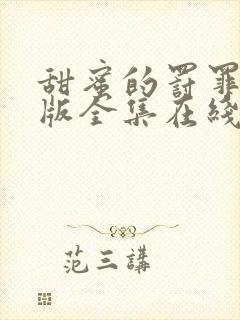 甜蜜的罰罪
版全集在綫
范三講